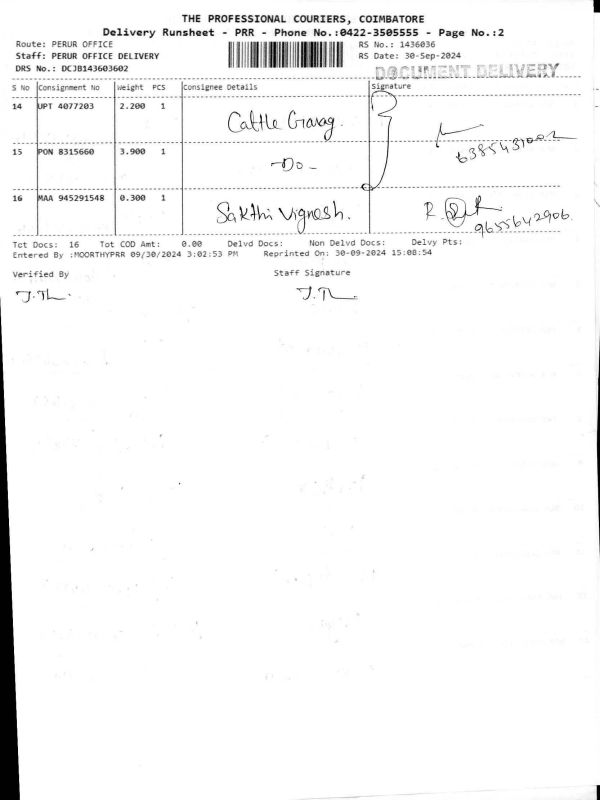 THE PROFESSIONAL COURIERS, COIMBATORE
Delivery Runsheet - PRR - Phone No.:0422-3505555 - Page No.:2
Route: PERUR OFFICE RS No.: 1436036
Staff: PERUR OFFICE DELIVERY RS Date: 30-Sep-2024
DRS No.: DCJB143603602 DOCUMENT DELIVERY
S No Consignment No Weight PCS Consignee Details Signature
14 UPT 4077203 2.200 1 Cattle
15 PON 8315660 3.900 1 -Do-
6385431002
16 MAA 945291548 0.300 1 Sakthi Vignesh.
9655642906
Tct Docs: 16 Tot COD Amt: 0.00 Delvd Docs: Non Delvd Docs: Delvy Pts:
Entered By :MOORTHYPRR 09/30/2024 3:02:53 PM Reprinted On: 30-09-2024 15:08:54
Verified By Staff Signature